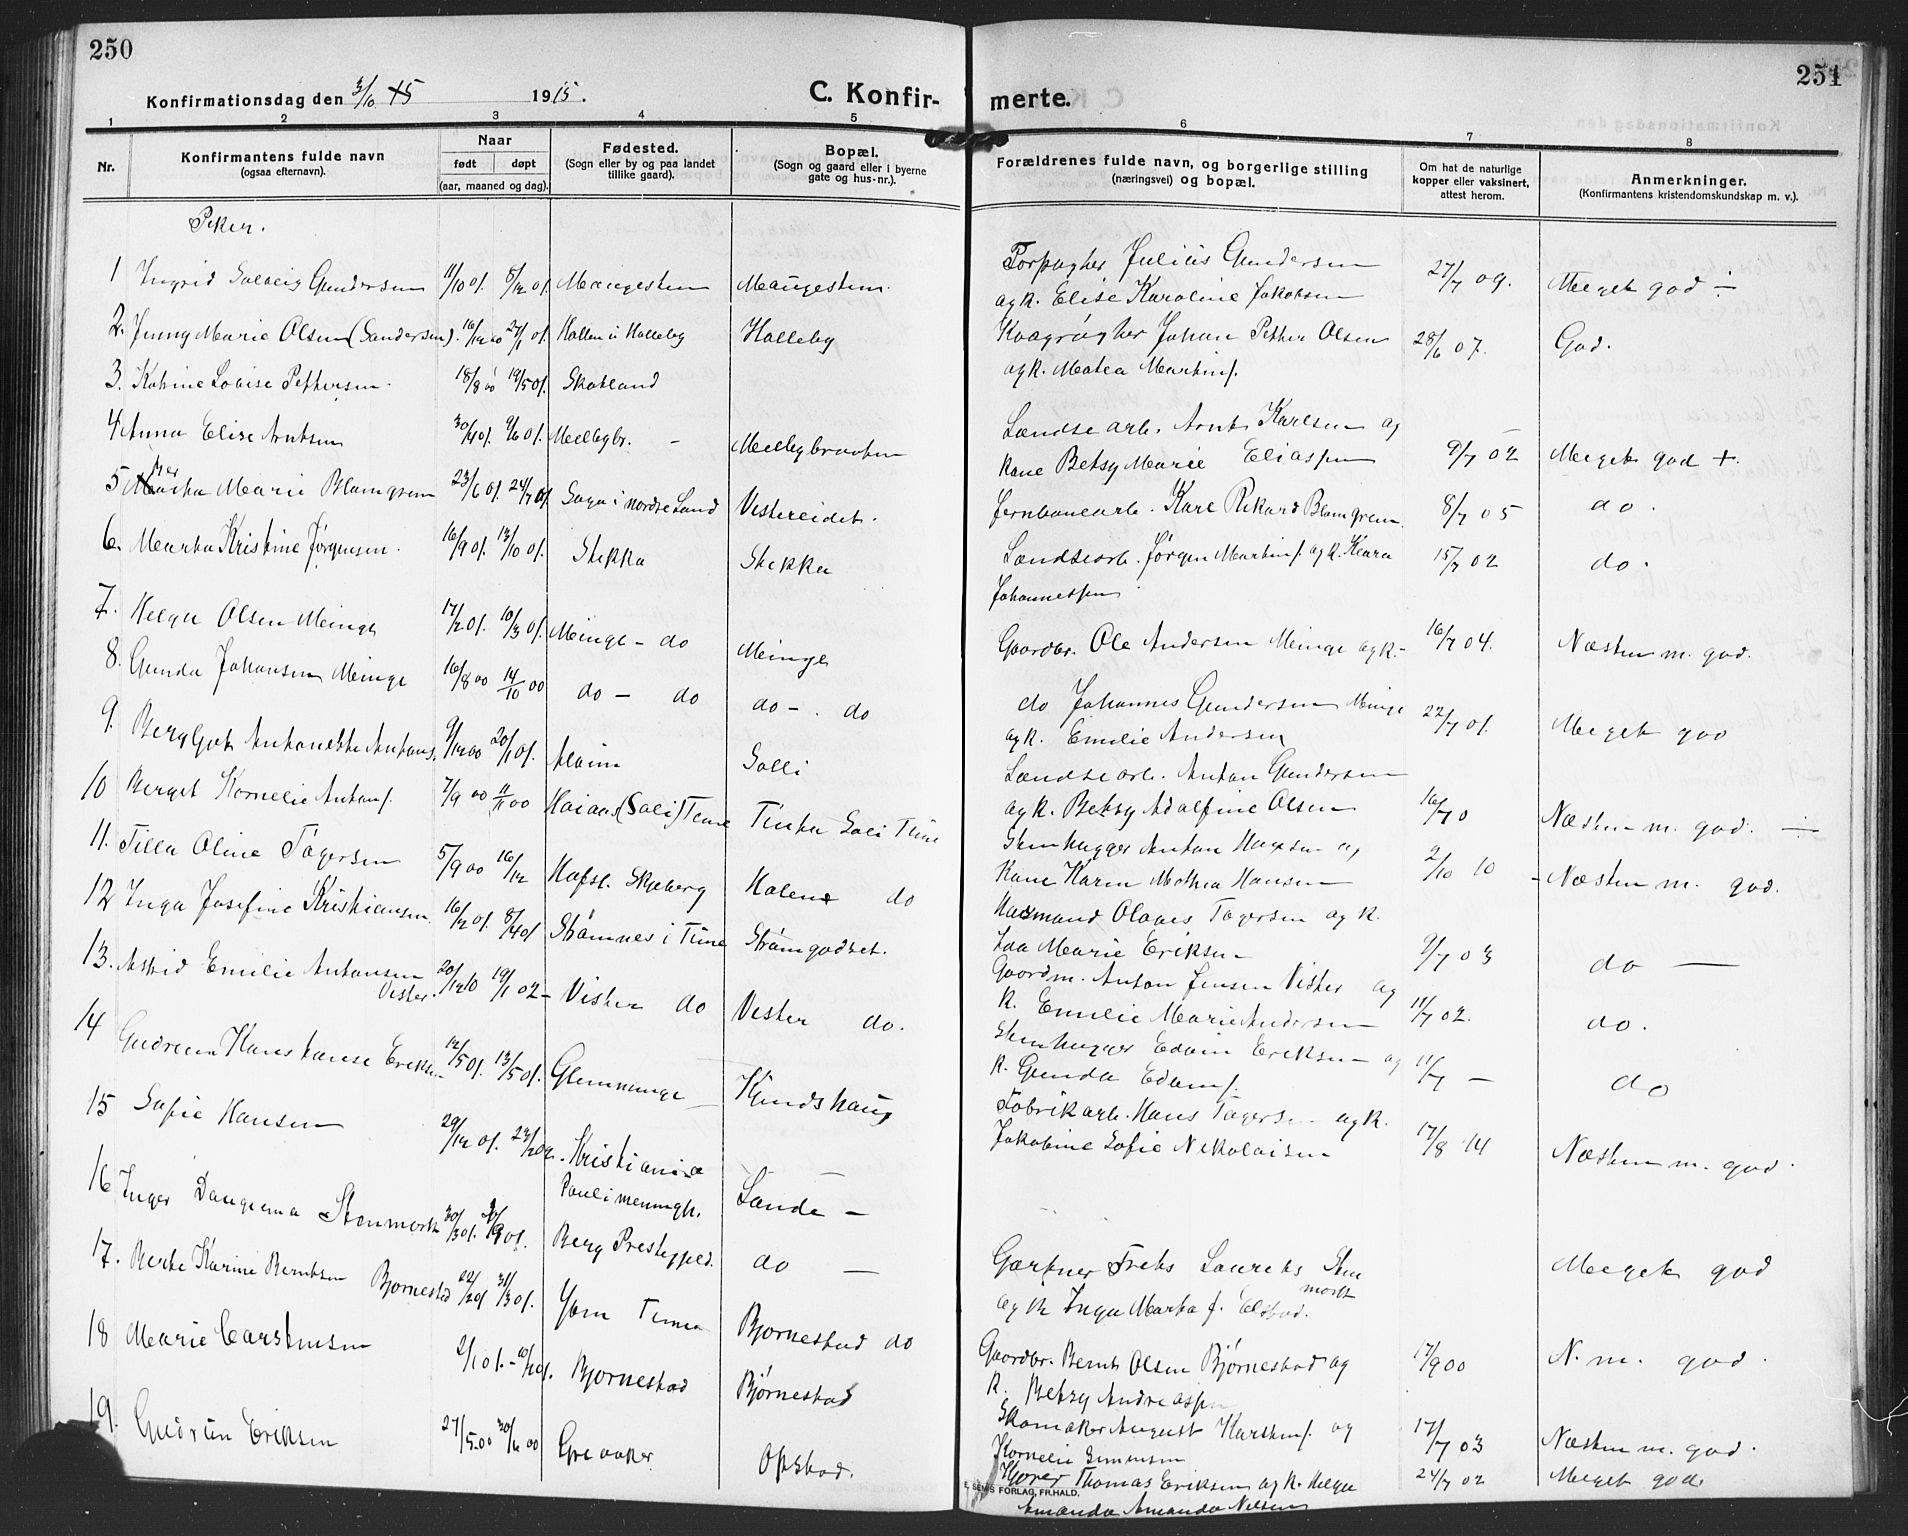 250
Konfirmationsdag den 3/10 15 1915.
C. Konfir-
1 2 3 4 5
Nr.
Konfirmantens fulde navn
(ogsaa efternavn).
Naar
født døpt
(aar, maaned og dag).
Fødested.
(Sogn eller by og paa landet
tillike gaard).
Bopæl.
(Sogn og gaard eller i byerne
gate og hus-nr.).
Piker.
1 Ingrid Solveig Gundersen 11/10 01. 8/12 01. Maugesten Maugesten.
2. Jenny Marie Olsen (Sandersen). 16/12 00 27/1 01. Hollen i Holleby Holleby
3. Katrine Lovise Pettersen. 18/8 00 19/5 01. Skotland
4 Anna Elise Arntsen 30/4 01. 9/6 01. Mellegbr. - Mellegbraaten
5 Marie Blomgren 23/6 01. 24/7 01. i nordre Land Vestereidet.
6. Marta Kristine Jørgensen. 16/9 01. 13/10 01. Stekka Stekka
7. Helga Olsen Minge 17/2 01. 10/3 01. Minge - do Minge
8. Gunda Johansen Minge 16/8 00 14/10 00 do - do do - . do
9. Bergljot Antonette Antons. 9/12 00 20/1 01. Solli
10 Berget Kornelie Antons. 7/9 00 11/11 00 (Soli) Tune Soli Tune
11. Tilla Oline Tagersen 5/9 00 16/12 Hafsl. Skjeberg do
12 Inga Josefine Kristiansen. 16/2 01. 8/4 01 Strømnes i Tune Strømgodset.
13. Astrid Emilie Antonsen 20/12 19/1 02 - Vister do Vester do.
Vister.
14 Gudrun Konstanse Eriks. 12/5 01. 13/5 01. Glemminge
15 Sofie Hansen 29/12 01. Kristiania
Pauli menigh. Sande -
16 Inger Dagmar Stenmork 30/3 01. Berg Prestegjeld. do -
17. Berte Karine Berntsen Bjornestad 22/2 01 31/3 01. Tune Bjornestad do
18 Marie Carstensen 2/1 01. - 10/2 01. Bjornestad Bjørnestad
19. Gudrun Eriksen 27/5 00 30/6 00 Greaaker Opstad.
251
merte.
6 7 8
Forældrenes fulde navn, og borgerlige stilling
(næringsvei) og bopæl.
Om hat de naturlige
kopper eller vaksinert,
attest herom.
Anmerkninger.
(Konfirmantens kristendomskundskap m. v.).
Forpagter Julius Gundersen
og k. Elise Karoline Jakobsen 27/7 09. Meget god ÷
Johan Petter Olsen
og k. Matea Martins. 28/6 07. God.
Landsearb. Arnt Karlsen og
kone Betsy Marie Eliassen 9/7 02 Meget god +.
Jernbanearb. Kare Rikard Blomgren. 8/7 05 do.
Landsearb. Jørgen Martins. og k. Klara 15/7 02 do.
Johannessen
Gaardbr. Ole Andersen Minge og k. - 16/7 04. Næsten m. god.
do Johannes Gundersen Minge
og k. Emilie Andersen 22/7 01. Meget god
Landsearb. Anton Gundersen
og k. Betsy Adolfine Olsen 16/7 0 Næsten m. god. ÷
Stenhugger Anton Hansen og
Kone Karen Mathea Hansen 2/10 10 - Næsten m. god.
Husmand Olaves Tagersen og k.
Marie Eriksen - 9/7 03 do -
Gaardm. Anton Jensen Vister og
k. Emilie Marie Andersen 11/7 02. do.
Stenhugger Edvin Eriksen og
k. Gunda Edvins. 11/7 - do
Fabrikarb. Hans Tagersen og k.
Jakobine Sofie Nikolaisen 17/8 14 Næsten m. god.
Gartner Frits Laurits Sten
mork
og k Inga Marta f. Elstad. Meget god
Gaardbr. Bernt Olsen Bjørnestad og 17/9 00 N. m. god.
k. Betsy Andreassen
Skomaker August Karstens. og 17/7 03 Næsten m. god.
Kornelie Simensen
Thomas Eriksen og k. Helga 24/7 02 Meget god.
E. SEMS FORLAG, FR.HALD.
Amanda Amanda Nilsen